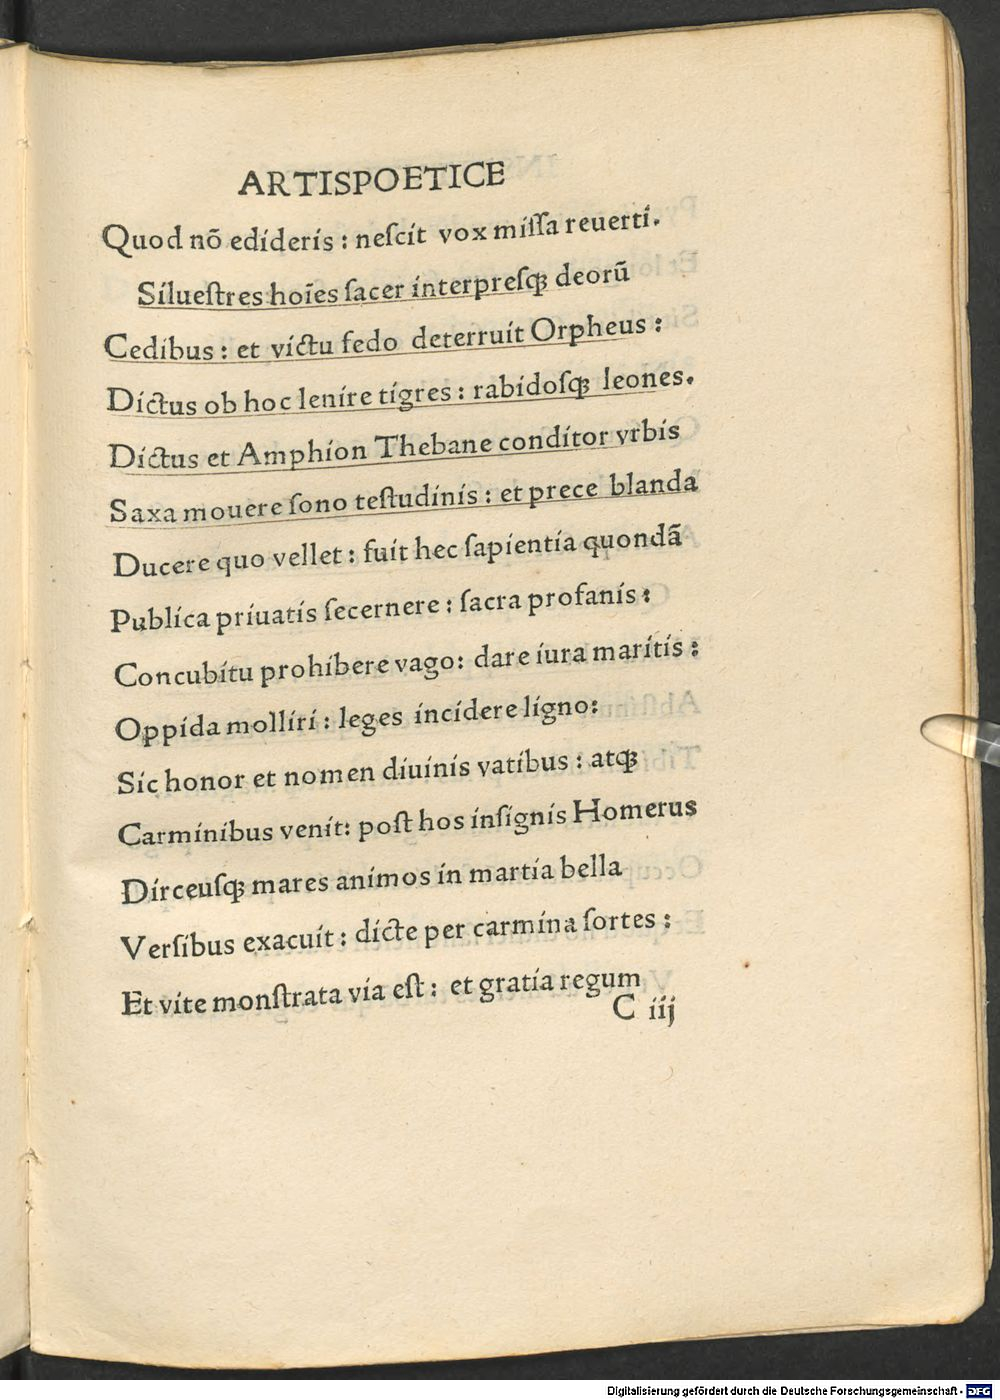 ARTISPOETICE
Quod nõ edideris : neſcit vox miſſa reuerti.
Silueſtres hoīes ſacer interpreſqꝫ deorũ
Cedibus : et victu fedo deterruit Orpheus :
Dictus ob hoc lenire tigres : rabidoſqꝫ leones.
Dictus et Amphion Thebane conditor vrbis
Saxa mouere ſono teſtudinis : et prece blanda
Ducere quo vellet : fuit hec ſapientia quondã
Publica priuatis ſecernere : ſacra profanis :
Concubitu prohibere vago: dare iura maritis :
Oppida molliri : leges incidere ligno:
Sic honor et nomen diuinis vatibus : atqꝫ
Carminibus venit: poſt hos inſignis Homerus
Dirceuſqꝫ mares animos in martia bella
Verſibus exacuit : dicte per carmina ſortes :
Et vite monſtrata via eſt : et gratia regum
C iij
Digitalisierung gefördert durch die Deutsche Forschungsgemeinschaft - DFG